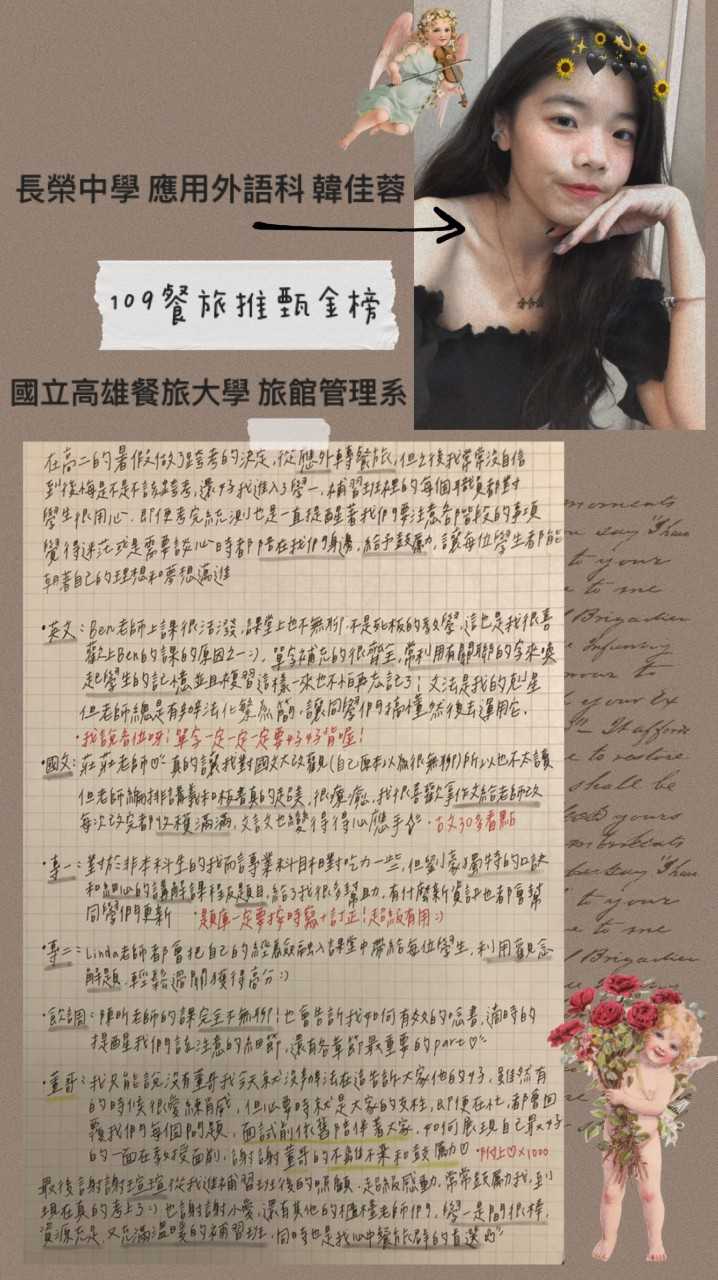 長榮中學 應用外語科 韓佳蓉
109餐旅推甄金榜
國立高雄餐旅大學 旅館管理系
在高二的暑假做了跨考的決定,從應外轉餐旅,但之後我常常沒自信
到後悔是不是不該跨考,還好我進入了學一,補習班裡的每個職員都對
學生很用心,即便考完統測也是一直提醒著我們要注意各階段的事項
覺得迷茫或是需要談心時都陪在我們身邊,給予鼓勵,讓每位學生都能
朝著自己的理想和夢想邁進
•英文:Ben老師上課很活潑,課堂上也不無聊,不是死板的教學,這也是我很喜
歡上Ben的課的原因之一:),單字補充的很齊全,常利用有關聯的字來喚
起學生的記憶並且複習這樣一來也不怕再忘記了!文法是我的剋星
但老師總是有辦法化繁為簡,讓同學們搞懂然後去運用它.
•我說各位呀!單字一定一定一定要好好背喔!
•國文:莊莊老師♡真的讓我對國文大改觀(自己原本以為很無聊)所以也不太讀
但老師編排講義和板書真的是讚,很療癒,我很喜歡寫作文給老師改
每次改完都收穫滿滿,文言文也變得得心應手 •古文30多看點
•專一:對於非本科生的我而言專業科目相對吃力一些,但劉豪獨特的口訣
和細心的講解課程及題目,給了我很多幫助,有什麼新資訊也都會幫
同學們更新 •題庫一定要按時寫+訂正!超級有用:)
•專二:Linda老師都會把自己的經驗融入課堂中帶給每位學生,利用觀念
解題,輕鬆過關獲得高分:)
•飲調:陳昕老師的課完全不無聊!也會告訴我如何有效的唸書,適時的
提醒我們該注意的細節,還有各章節最重要的part♡
•董哥:我只能說沒有董哥我今天就沒辦法在這告訴大家他的好,雖然有
的時候很愛練肖威,但必要時就是大家的支柱,即便在忙,都會回
覆我們每個問題,面試前依舊陪伴著大家,如何展現自己最好
的一面在教授面前,謝謝董哥的不離不棄和鼓勵♡ •附上♡×1000
最後謝謝瑄瑄從我進補習班後的照顧,超級感動,常常鼓勵我,到
現在真的考上了:)也謝謝小愛,還有其他的櫃檯老師們,學一是間很棒,
資源充足,又充滿溫暖的補習班,同時也是我心中餐旅群的首選
moments
to your
to me
Brigadier
Infantry
your Ex
It affords
to restore
shall be
yours
to your
to me
Brigadier